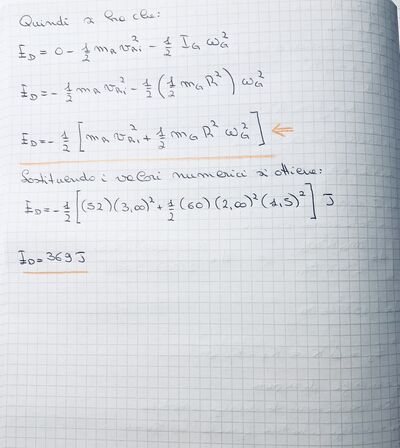 Quindi si ha che:
E_D = 0 - 1/2 m_R v_Ri^2 - 1/2 I_G ω_G^2
E_D = - 1/2 m_R v_Ri^2 - 1/2 (1/2 m_G R^2) ω_G^2
E_D = - 1/2 [m_R v_Ri^2 + 1/2 m_G R^2 ω_G^2] ⇐
Sostituendo i valori numerici si ottiene:
E_D = - 1/2 [(52)(3,00)^2 + 1/2 (60)(2,00)^2 (1,5)^2] J
E_D = 369 J